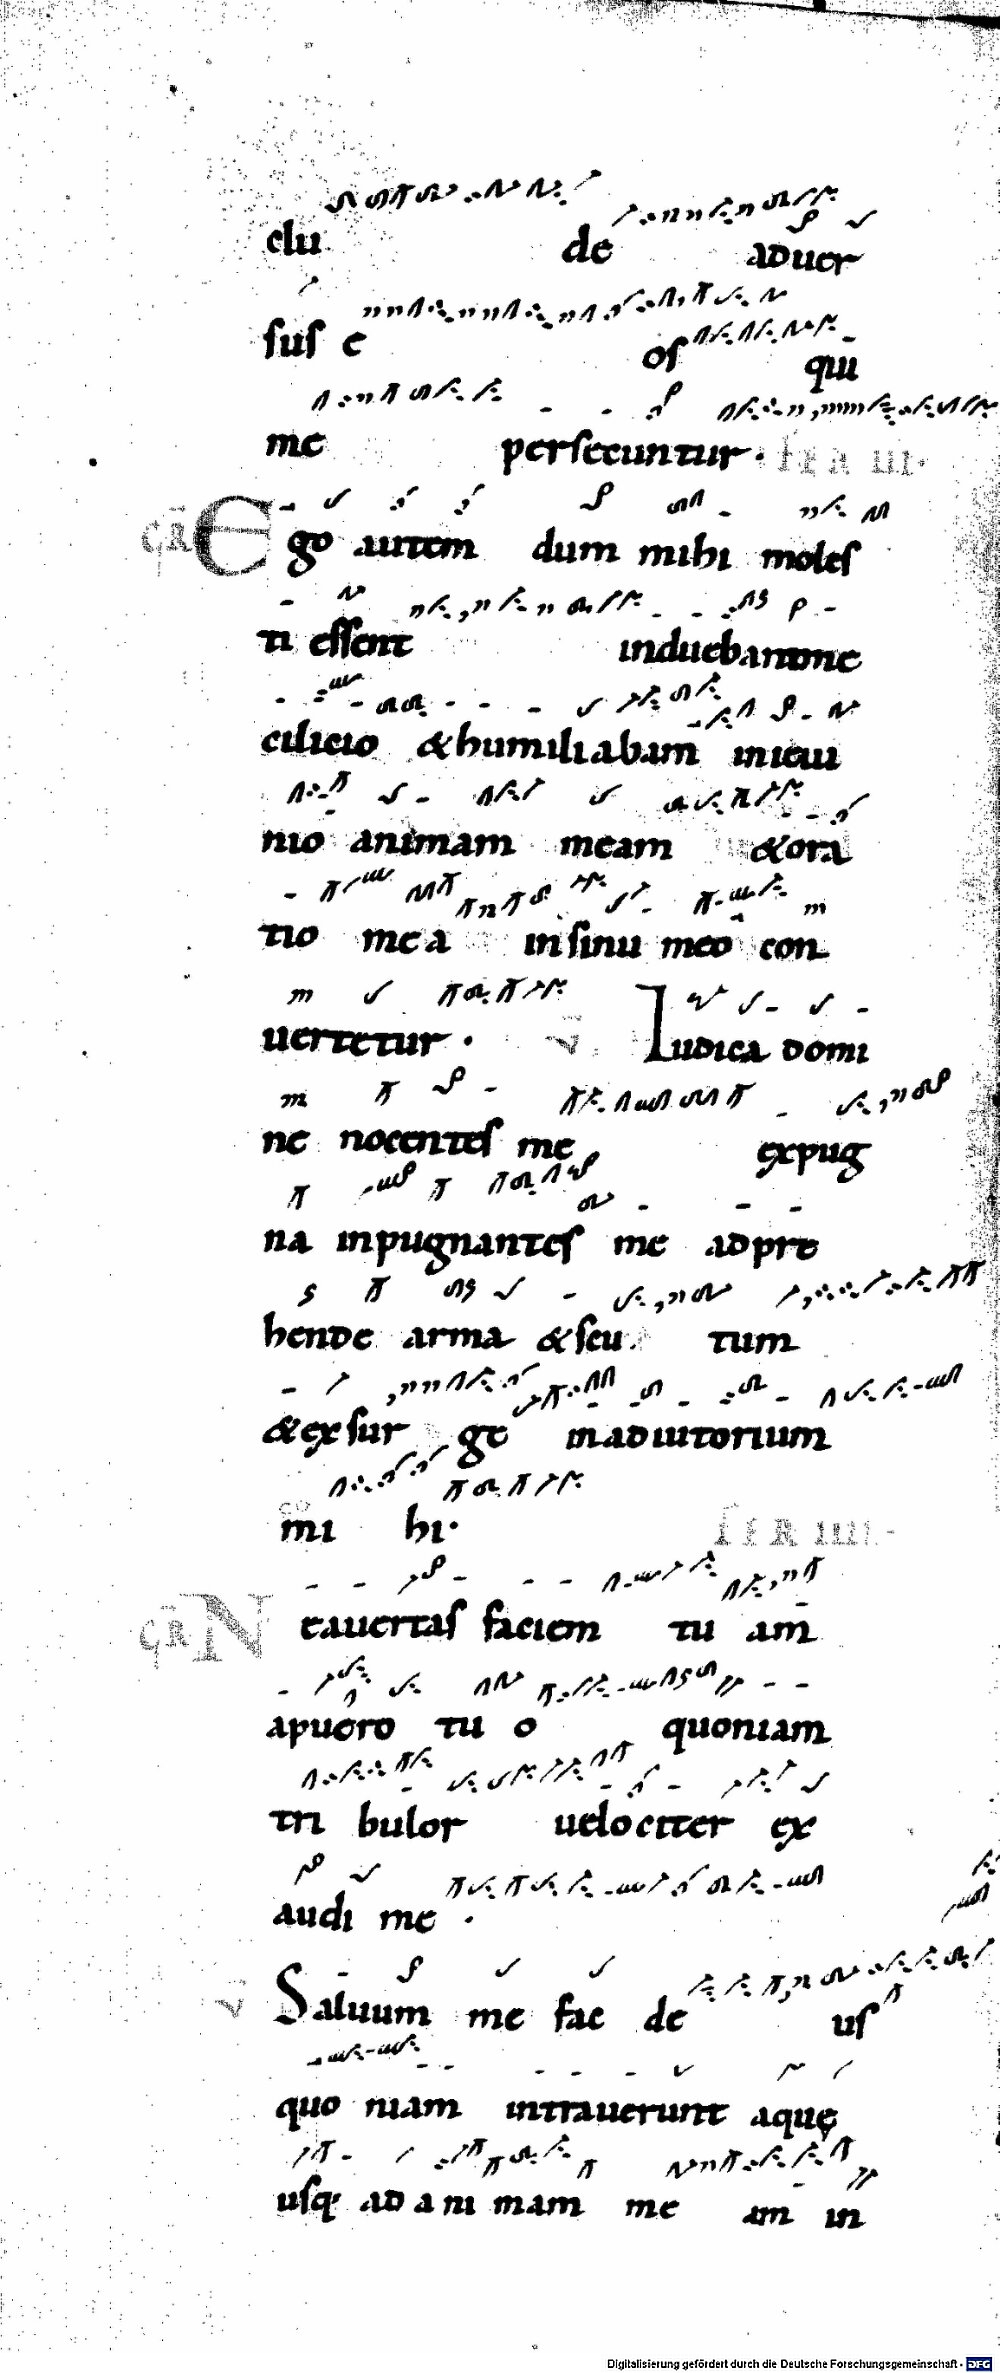 clu de aduer
sus e os qui
me persecuntur. FERIA III.
GR Ego autem dum mihi moles
ti essent induebam me
cilicio & humiliabam in ieiu
nio animam meam & ora
tio mea in sinu meo con
uertetur. V Iudica domi
ne nocentes me expug
na inpugnantes me adpre
hende arma & scu tum
& exsur ge in adiutorium
mi hi. FERIA IIII.
GR Ne auertas faciem tu am
a puero tu o quoniam
tri bulor uelociter ex
audi me.
V Saluum me fac de us
quo niam intrauerunt aquę
usq; ad ani mam me am in
Digitalisierung gefördert durch die Deutsche Forschungsgemeinschaft - DFG